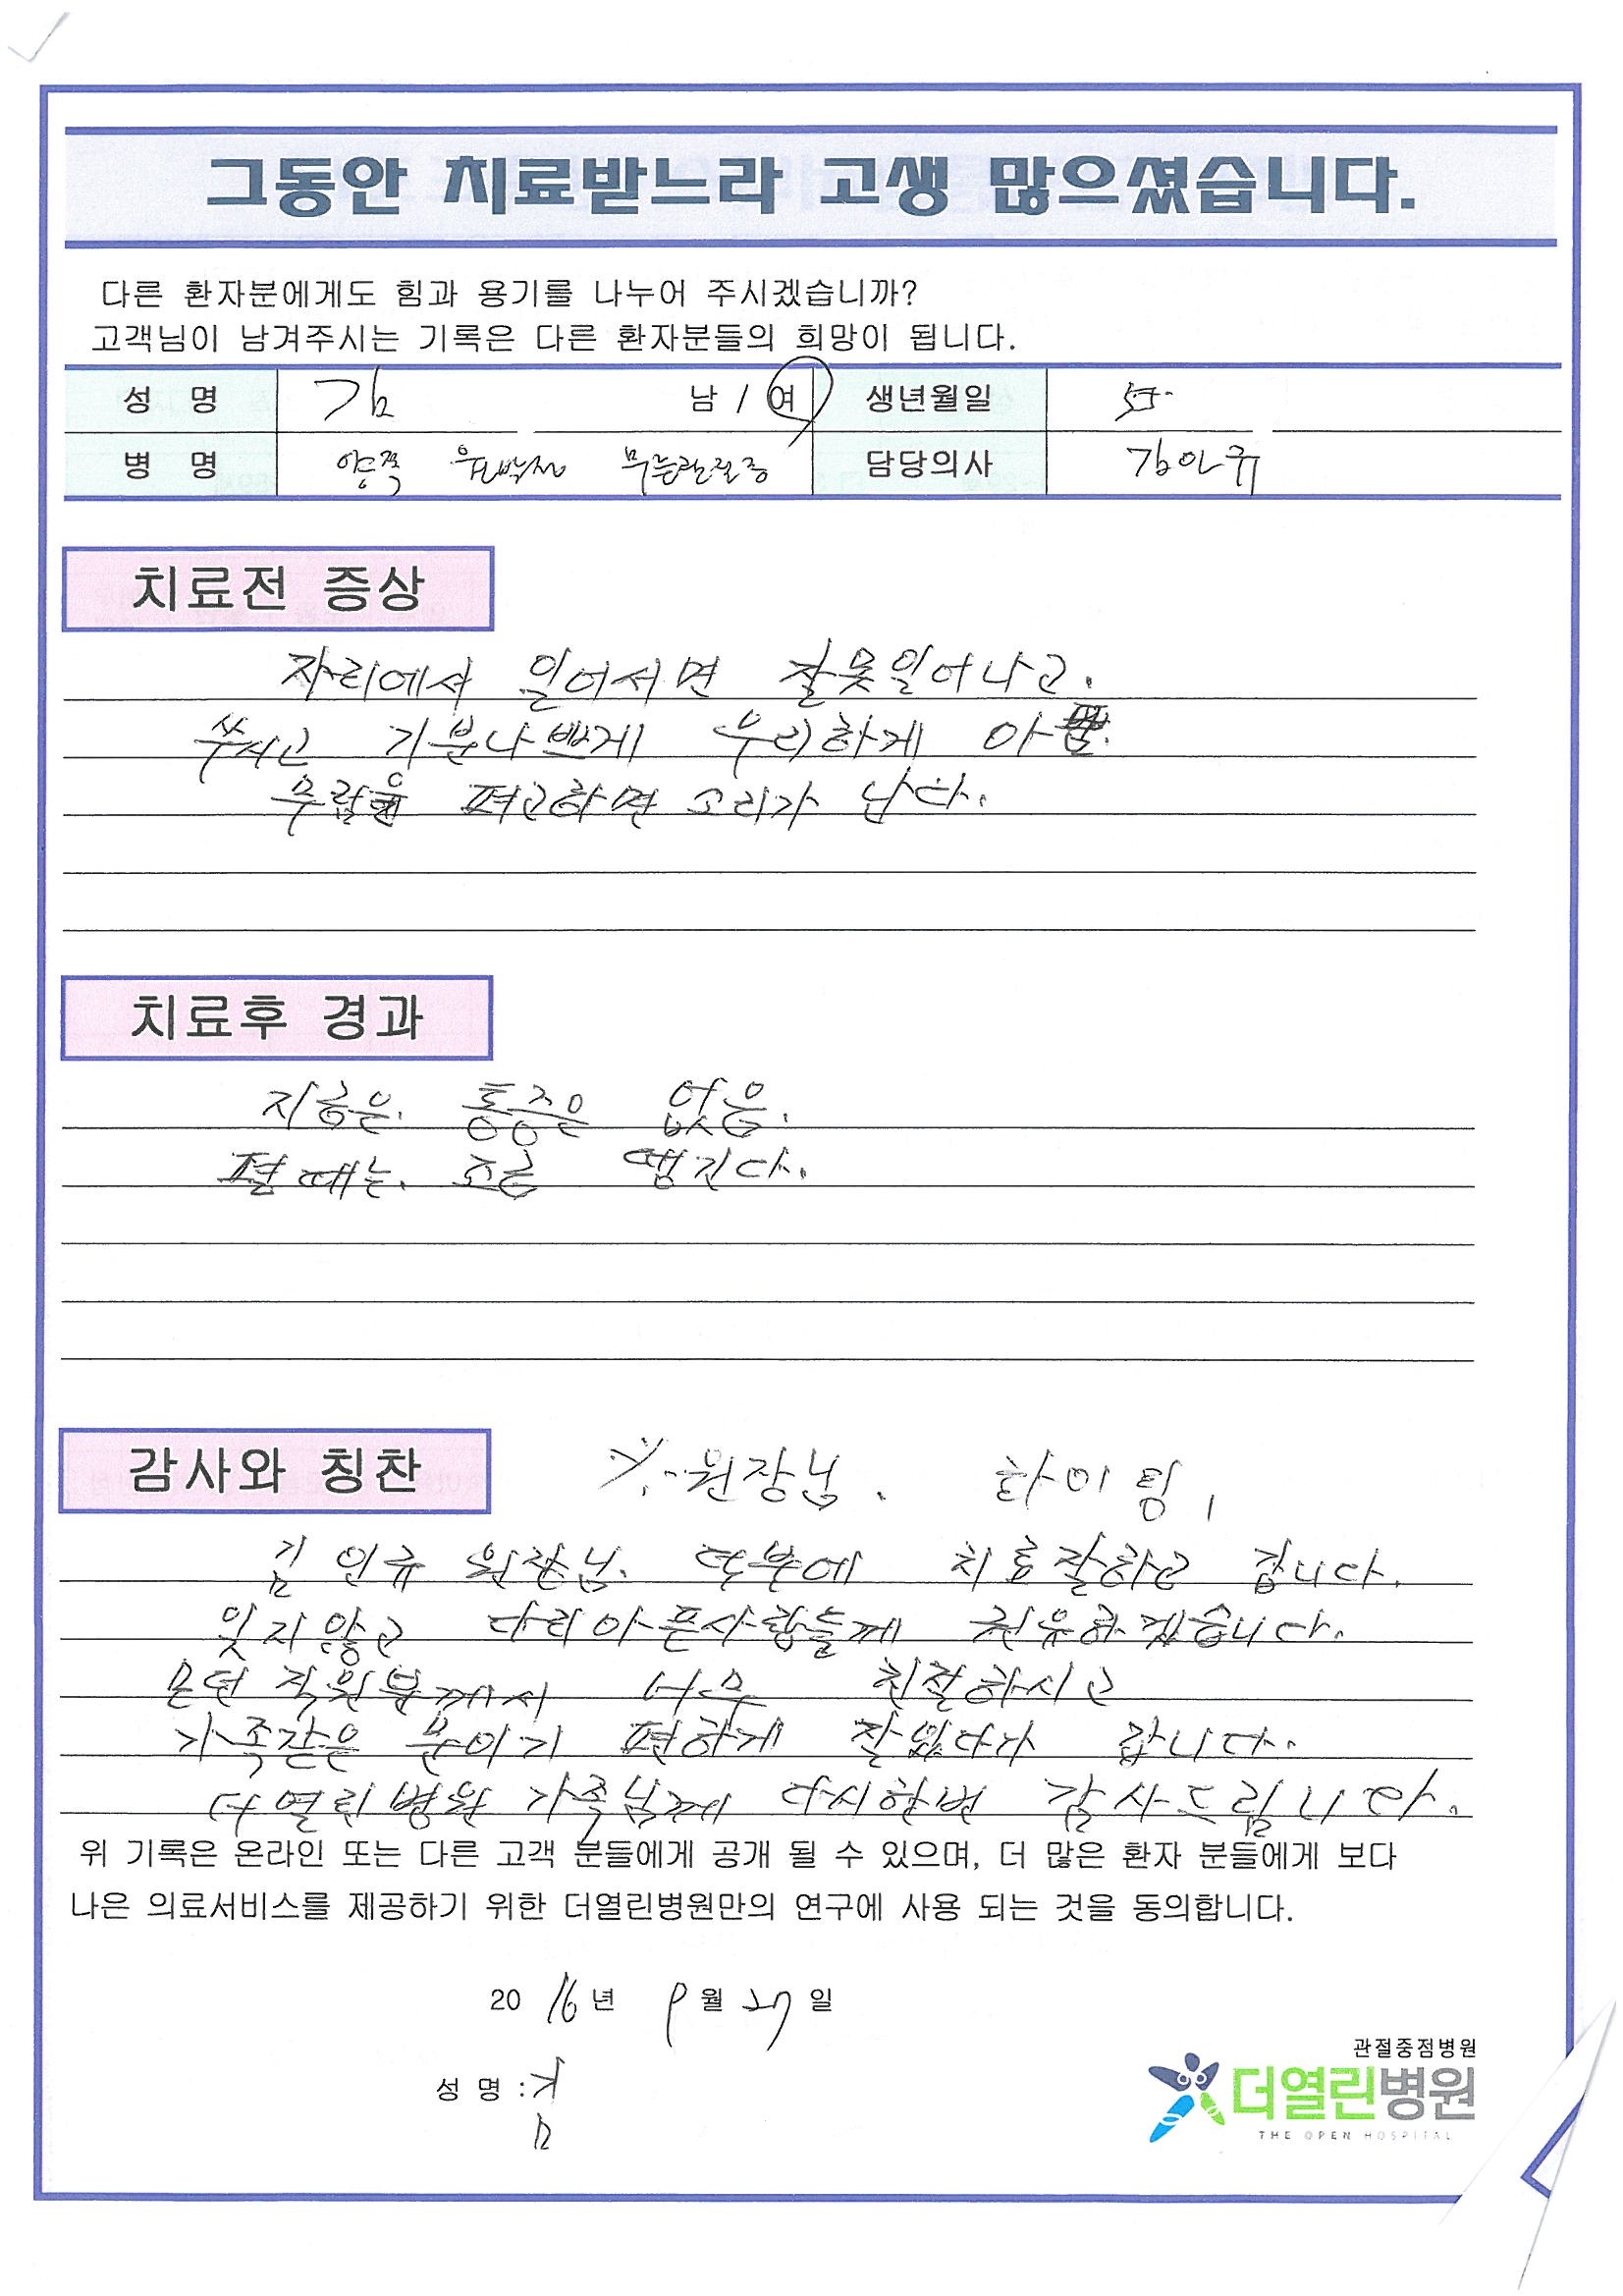 그동안 치료받느라 고생 많으셨습니다.
다른 환자분에게도 힘과 용기를 나누어 주시겠습니까?
고객님이 남겨주시는 기록은 다른 환자분들의 희망이 됩니다.
성 명 김 남 / 여 생년월일 55.
병 명 양쪽 무릎관절증 담당의사
치료전 증상
자리에서 일어서면 잘못일어나고.
쑤시고 기분나쁘게 우리하게 아픔.
무릎을 펴고하면 소리가 난다.
치료후 경과
지금은. 통증은 없음.
펼때는. 조금 땡긴다.
감사와 칭찬 ※. 원장님. 하이팅,
김인규 원장님. 덕부에 치료잘하고 갑니다.
잊지않고 다리아픈사람들께 권유하겠습니다.
모던 직원분께서 너무 친절하시고
가족같은 분이기 편하게 잘있다가 갑니다.
더열린병원 가족님께 다시한번 감사드립니다.
위 기록은 온라인 또는 다른 고객 분들에게 공개 될 수 있으며, 더 많은 환자 분들에게 보다
나은 의료서비스를 제공하기 위한 더열린병원만의 연구에 사용 되는 것을 동의합니다.
20 16 년 9 월 27 일
성 명 : 김
관절중점병원
더열린병원
THE OPEN HOSPITAL